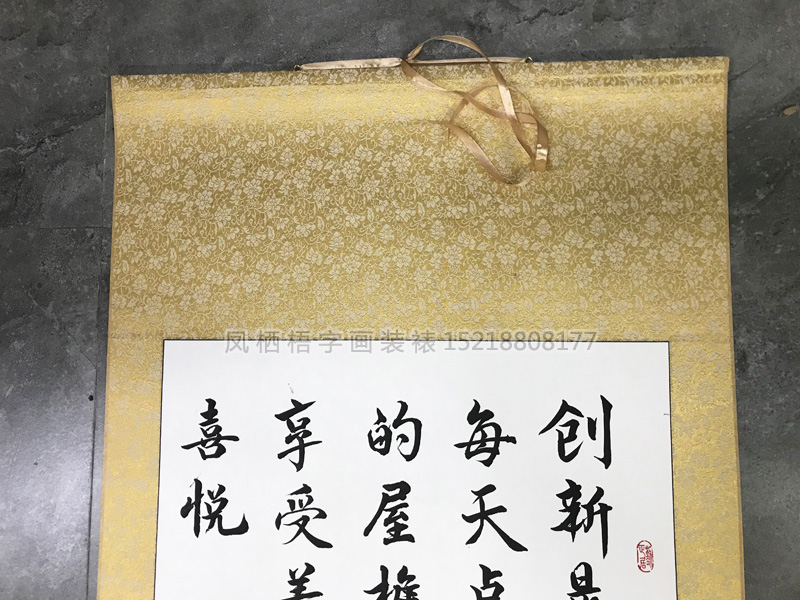 凤栖梧字画装裱 15218808177
创新是
每天点
的屋檐
享受美
喜悦